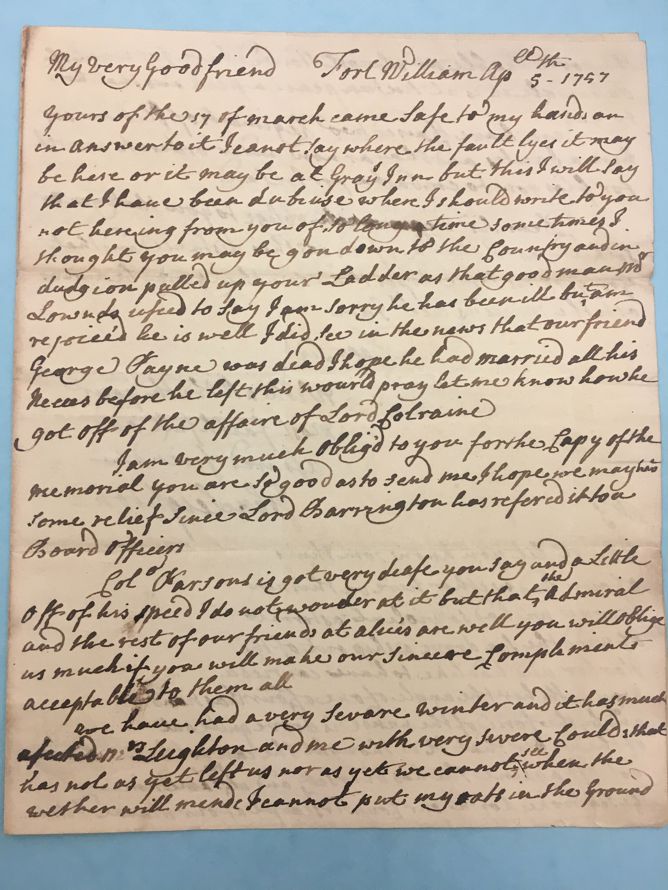 My very Good friend Fort William Ap ell th 5 - 1757
yours of the 17 of march came Safe to my hands an
in answer to it I canot say where the fault lyes it may
be here or it may be at Gray Inn but this I will Say
that I have been dubiuse where I should write to you
not hereing from you of So long a time some times I
thought you may be gon down to the Country and in
dudgion pulled up your Ladder as that good man Mr
Lownds used to Say I am sorry he has been ill but am
rejoiced he is well I did see in the news that our friend
George Payne was dead I hope he had married all his
Neces before he left this would pray let me know how he
got off of the affaire of Lord Colraine
I am very much Oblig'd to you for the Capy of the
memorial you are So good as to send me I hope we may have
some relief Since Lord Barrington has refered it to a
Board Officers
Coll Parsons is got very deafe you say and a Little
Off of his speed I do not wonder at it but that the Admiral
and the rest of our friends at alices are well you will Oblige
us much if you will make our Sincere Compliments
acceptable to them all
we have had a very Sevare winter and it has much
afected Mrs Leighton and me with very severe Could that
has not as yet left us nor as yet we cannot see when the
wether will mend I cannot put my oats in the Ground